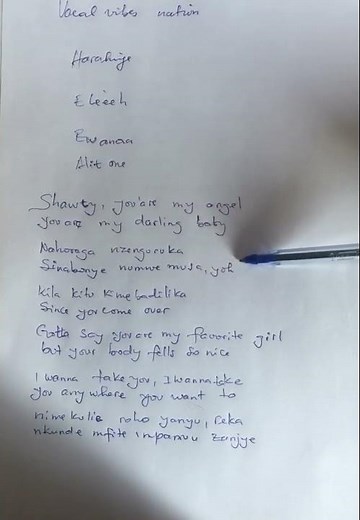 Vocal vibes nation
Harahiye
Eleeeh
Ewanaa
Alit one
Shawty, you're my angel
you are my darling baby
Nahoraga nzengoruka
Sinabonye numwe musa, yoh
Kila kitu kmebadilika
Since you come over
Gotta say you are my favorite girl
but your body fells so nice
I wanna take you, I wanna take
you any where you want to
nimekulia roho yanyu, reka
nkunde mfite impamvu zanjye